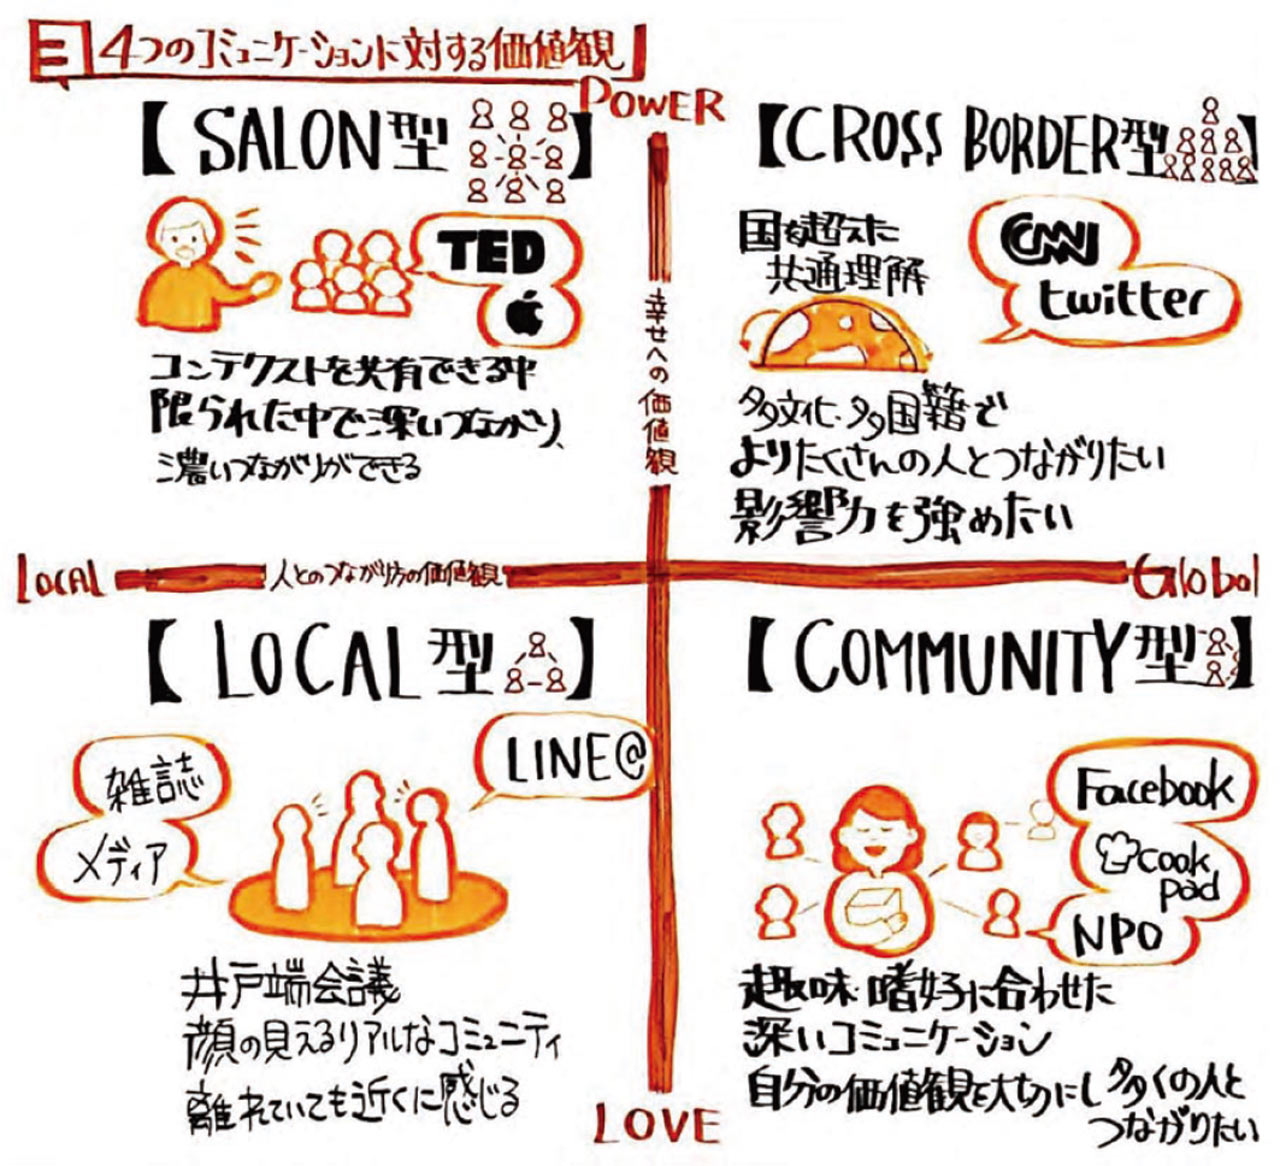 4つのコミュニケーションに対する価値観
POWER
【SALON型】
TED
コンテクストを共有できる中
限られた中で深いつながり、
濃いつながりができる
【CROSS BORDER型】
国を超えた
共通理解
CNN
twitter
多文化・多国籍で
よりたくさんの人とつながりたい
影響力を強めたい
幸せへの価値観
LOCAL
人とのつながり方の価値観
Global
【LOCAL型】
LINE@
雑誌
メディア
井戸端会議
顔の見えるリアルなコミュニティ
離れていても近くに感じる
【COMMUNITY型】
Facebook
cook
pad
NPO
趣味・嗜好に合わせた
深いコミュニケーション
自分の価値観を大切にし多くの人と
つながりたい
LOVE